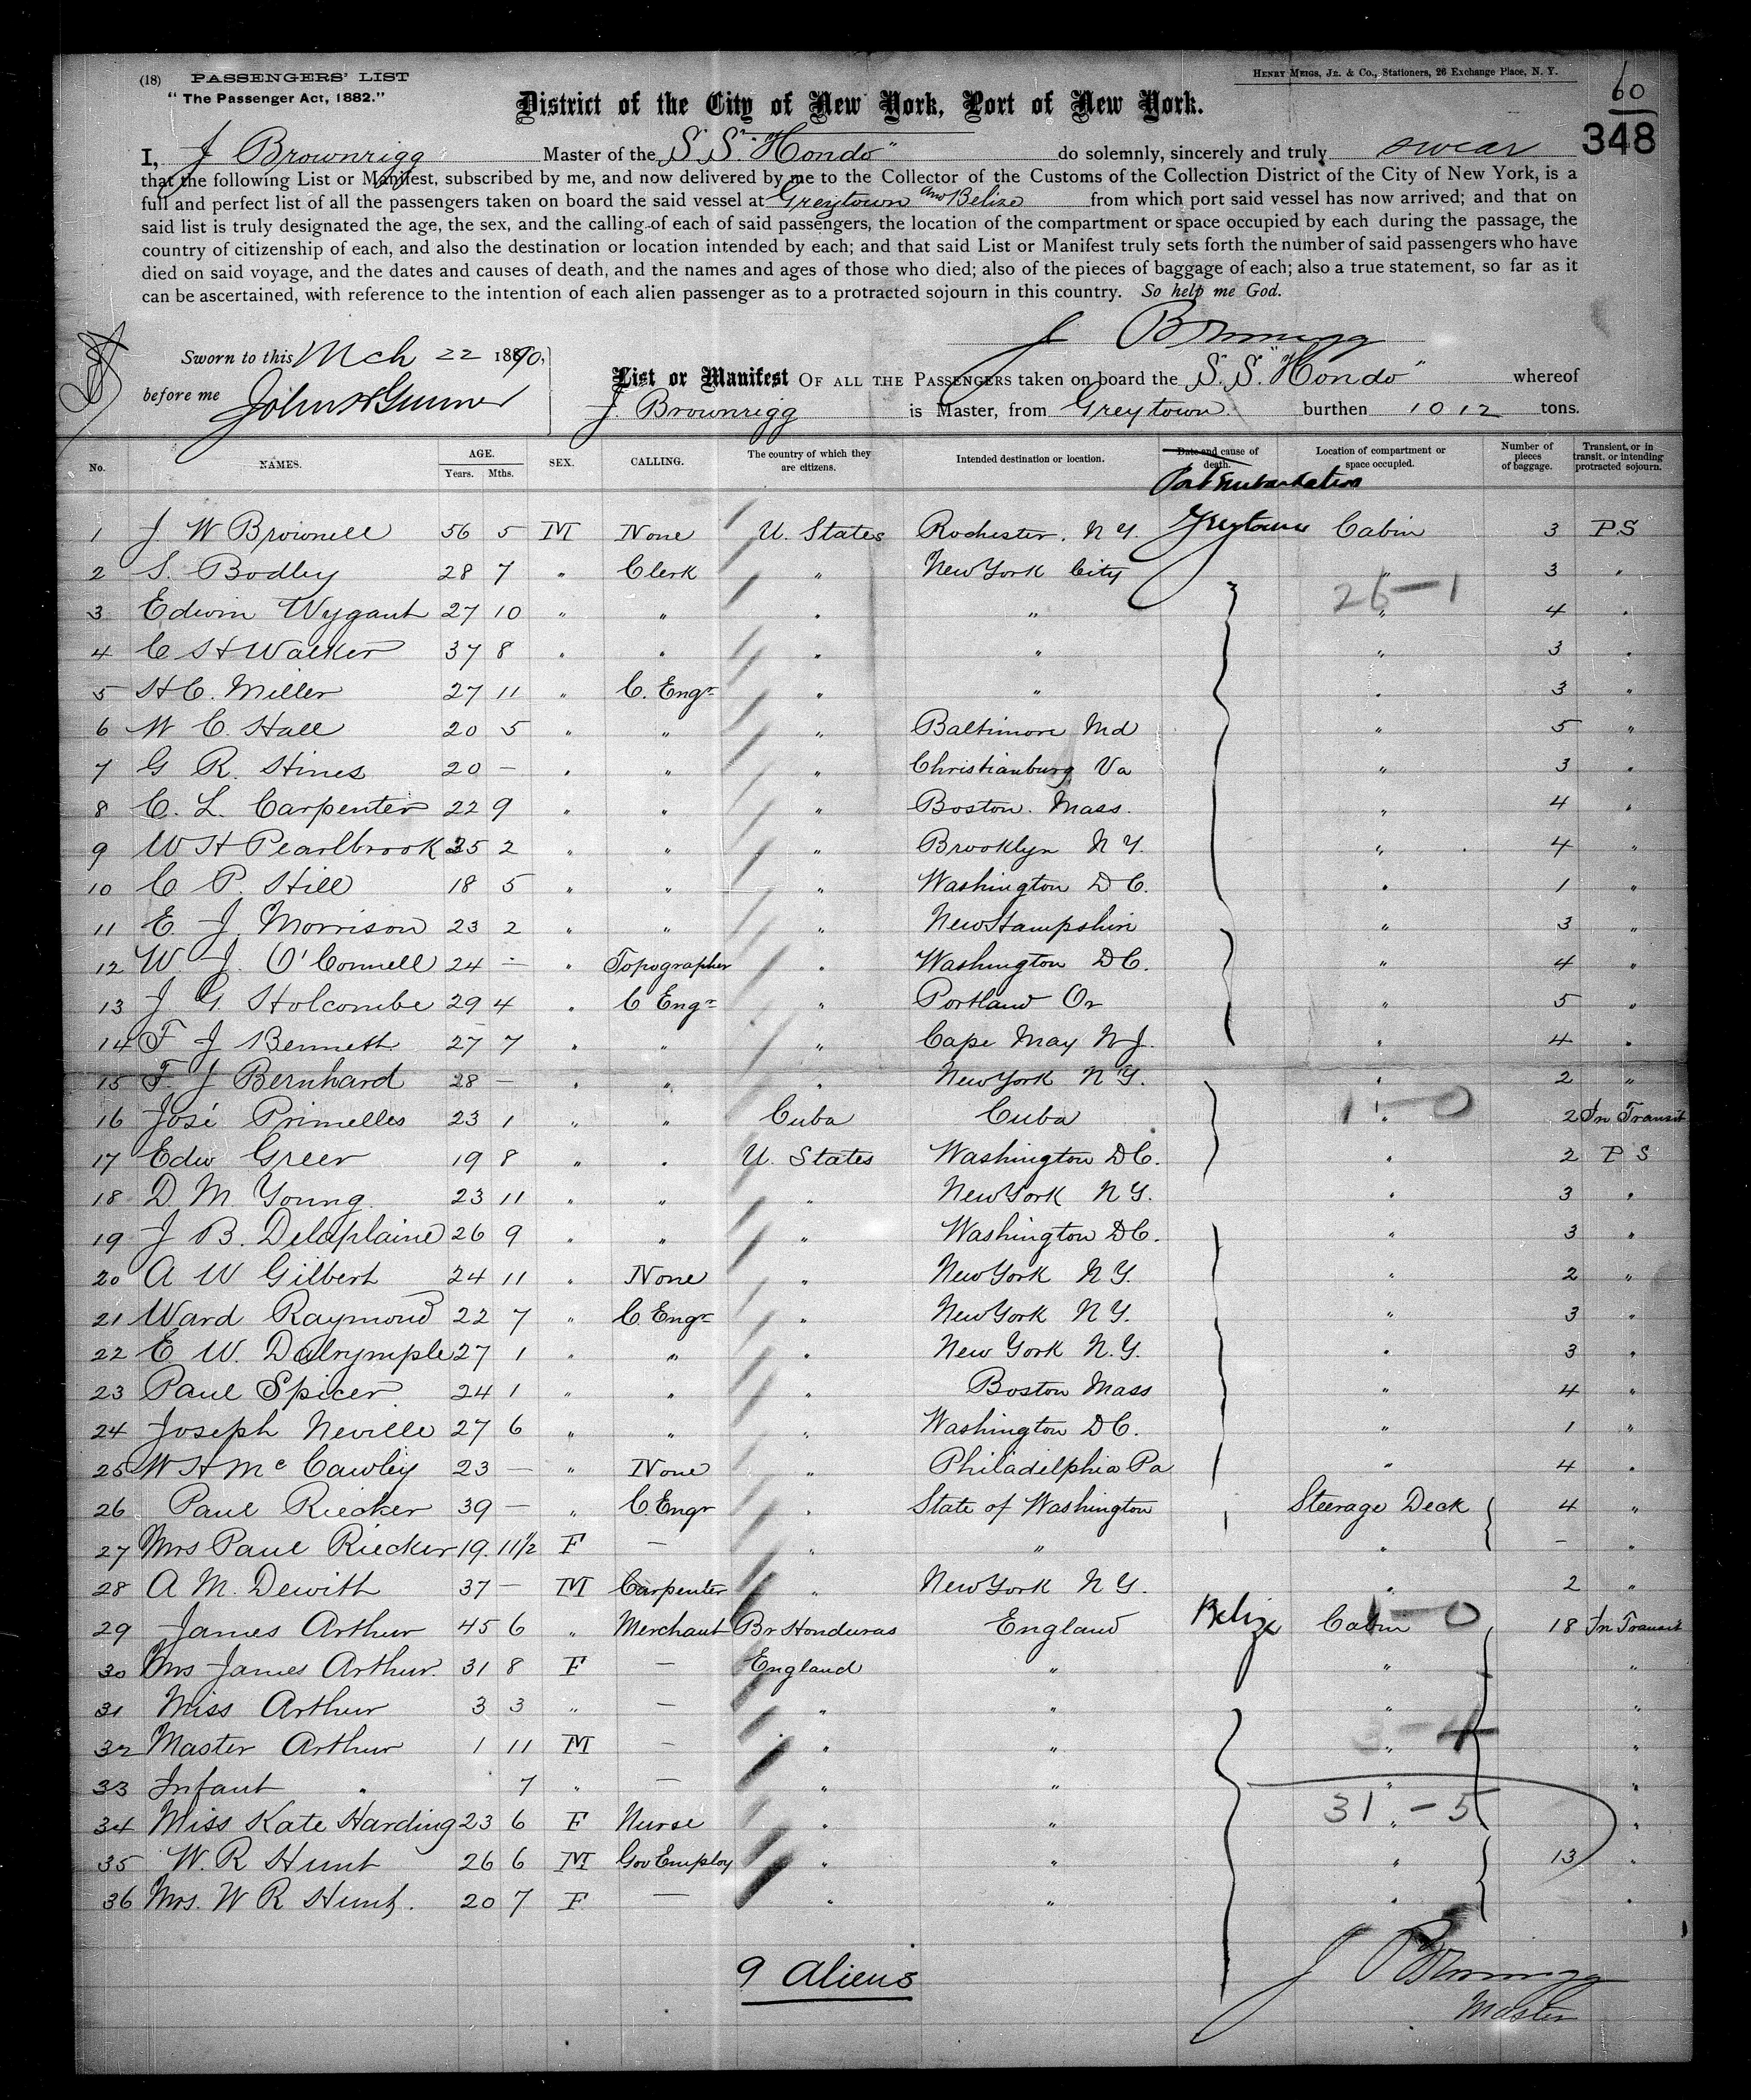 (18) PASSENGERS' LIST
"The Passenger Act, 1882."
HENRY MEIGS, JR. & CO., Stationers, 26 Exchange Place, N. Y.
60
348
District of the City of New York, Port of New York.
I, J Brownrigg Master of the S.S. "Hondo" do solemnly, sincerely and truly swear
that the following List or Manifest, subscribed by me, and now delivered by me to the Collector of the Customs of the Collection District of the City of New York, is a
full and perfect list of all the passengers taken on board the said vessel at Greytown and Belize from which port said vessel has now arrived; and that on
said list is truly designated the age, the sex, and the calling of each of said passengers, the location of the compartment or space occupied by each during the passage, the
country of citizenship of each, and also the destination or location intended by each; and that said List or Manifest truly sets forth the number of said passengers who have
died on said voyage, and the dates and causes of death, and the names and ages of those who died; also of the pieces of baggage of each; also a true statement, so far as it
can be ascertained, with reference to the intention of each alien passenger as to a protracted sojourn in this country. So help me God.
J Brownrigg
Sworn to this Mch 22 1890,
before me John H Gunner
List or Manifest OF ALL THE PASSENGERS taken on board the S.S. "Hondo" whereof
J. Brownrigg is Master, from Greytown burthen 1012 tons.
No. NAMES. AGE. Years. Mths. SEX. CALLING. The country of which they are citizens. Intended destination or location. Date and cause of death. Port Embarkation Location of compartment or space occupied. Number of pieces of baggage. Transient, or in transit, or intending protracted sojourn.
1 J W Brownell 56 5 M None U. States Rochester. N Y. Greytown Cabin 3 P.S
2 S. Bodley 28 7 " Clerk " New York City " 3 "
26-1
3 Edwin Wygant 27 10 " " " " " 4 "
4 C H Walker 37 8 " " " " " 3 "
5 H C. Miller 27 11 " C. Engr " " " 3 "
6 W C. Hall 20 5 " " " Baltimore Md " 5 "
7 G R. Hines 20 — " " " Christianburg Va " 3 "
8 C. L. Carpenter 22 9 " " " Boston. Mass. " 4 "
9 W H Pearlbrook 25 2 " " " Brooklyn N Y. " 4 "
10 C P. Hill 18 5 " " " Washington D C. " 1 "
11 E. J. Morrison 23 2 " " " New Hampshire " 3 "
12 W J. O'Connell 24 — " Topographer " Washington D C. " 4 "
13 J G. Holcombe 29 4 " C Engr " Portland Or " 5 "
14 F J Bennett 27 7 " " " Cape May N J. " 4 "
15 F. J Bernhard 28 — " " " New York N Y. " 2 "
16 José Primelles 23 1 " " Cuba Cuba " 2 In Transit
1-0
17 Edw Greer 19 8 " " U. States Washington D C. " 2 P S
18 D. M. Young 23 11 " " " New York N Y. " 3 "
19 J B. Delaplaine 26 9 " " " Washington D C. " 3 "
20 A W Gilbert 24 11 " None " New York N Y. " 2 "
21 Ward Raymond 22 7 " C. Engr " New York N Y. " 3 "
22 E W. Dalrymple 27 1 " " " New York N.Y. " 3 "
23 Paul Spicer 24 1 " " " Boston Mass " 4 "
24 Joseph Neville 27 6 " " " Washington D C. " 1 "
25 W H Mc Cawley 23 — " None " Philadelphia Pa " 4 "
26 Paul Riecker 39 — " C. Engr " State of Washington Steerage Deck 4 "
27 Mrs Paul Riecker 19. 11½ F — " " " — "
28 A M. Dewith 37 — M Carpenter " New York N Y. " 2 "
29 James Arthur 45 6 " Merchant Br Honduras England Belize Cabin 18 In Transit
1-0
30 Mrs James Arthur. 31 8 F — England " " "
31 Miss Arthur 3 3 " — " " " "
32 Master Arthur 1 11 M — " " " "
3-4
33 Infant " 7 " — " " " "
31-5
34 Miss Kate Harding 23 6 F Nurse " " " "
35 W. R Hunt 26 6 M Gov Employ " " " 13 "
36 Mrs. W R Hunt. 20 7 F — " " " "
9 Aliens
J Brownrigg
Master